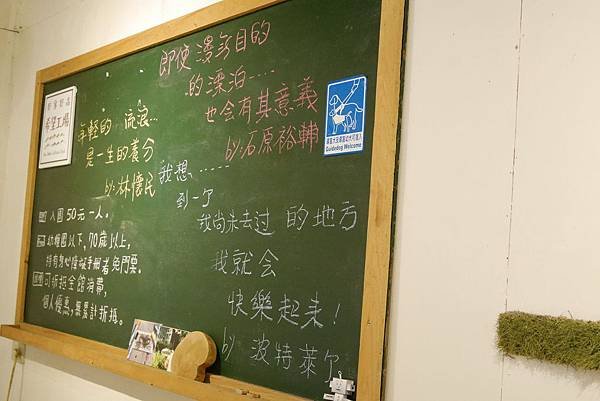 即使漫無目的
的漂泊....
也會有其意義
by:石原裕輔
年輕的 流浪...
是一生的養分
by:林懷民
我想......
到一个
我尚未去过 的地方
我就会
快樂起來!
by 波特萊尔
入園50元一人。
幼稚園以下,70歲以上,
持有身心障礙手冊者免門票。
可折抵全館消費,
個人優惠,無累計折抵。
希望工場
Guidedog Welcome